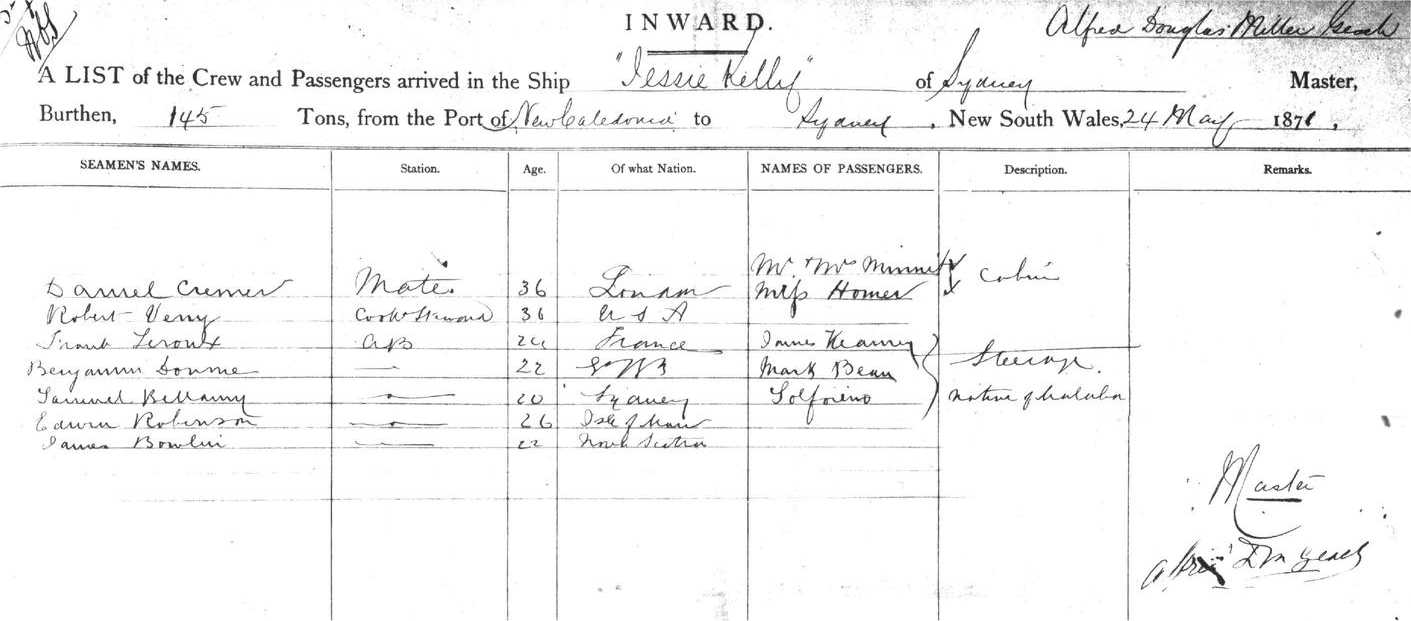 INWARD.
Alfred Douglas Miller Geach
A LIST of the Crew and Passengers arrived in the Ship "Jessie Kelly" of Sydney Master,
Burthen, 145 Tons, from the Port of New Caledonia to Sydney, New South Wales, 24 May 1871.
SEAMEN'S NAMES. Station. Age. Of what Nation. NAMES OF PASSENGERS. Description. Remarks.
Mr & Mrs
Daniel Cremer Mate 36 London Miss Homer Cabin
Robert Verry Cook & Steward 36 U S A
Frank Leroux AB 24 France James Kearney
Benjamin 22 Mark Bean Steerage.
Samuel Bellamy 20 Sydney Solforino native of
Edwin Robinson 26 Isle of Man
James Bowlin 22 Nova Scotia
Master
Alfred D M Geach